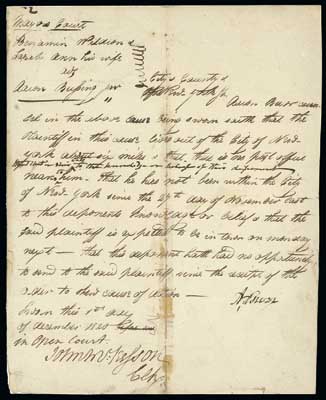 Mayors Court
Benjamin
Sarah Ann his wife
ads
Aaron Burr coun
sel in the above cause being sworn saith that the
plaintiff in this cause lives out of the City of New-
york six miles & that there is no post office
near him. that he has not been within the City
of New-York since the 27th day of November last
to this deponents knowledge or belief & that the
said plaintiff is expected to be in town on monday
next — that this deponent hath had no opportunity
to send to the said plaintiff since the service of the
order to shew cause of action —
Sworn this 1st day
A. Burr
of december 1820
in open Court
Clk